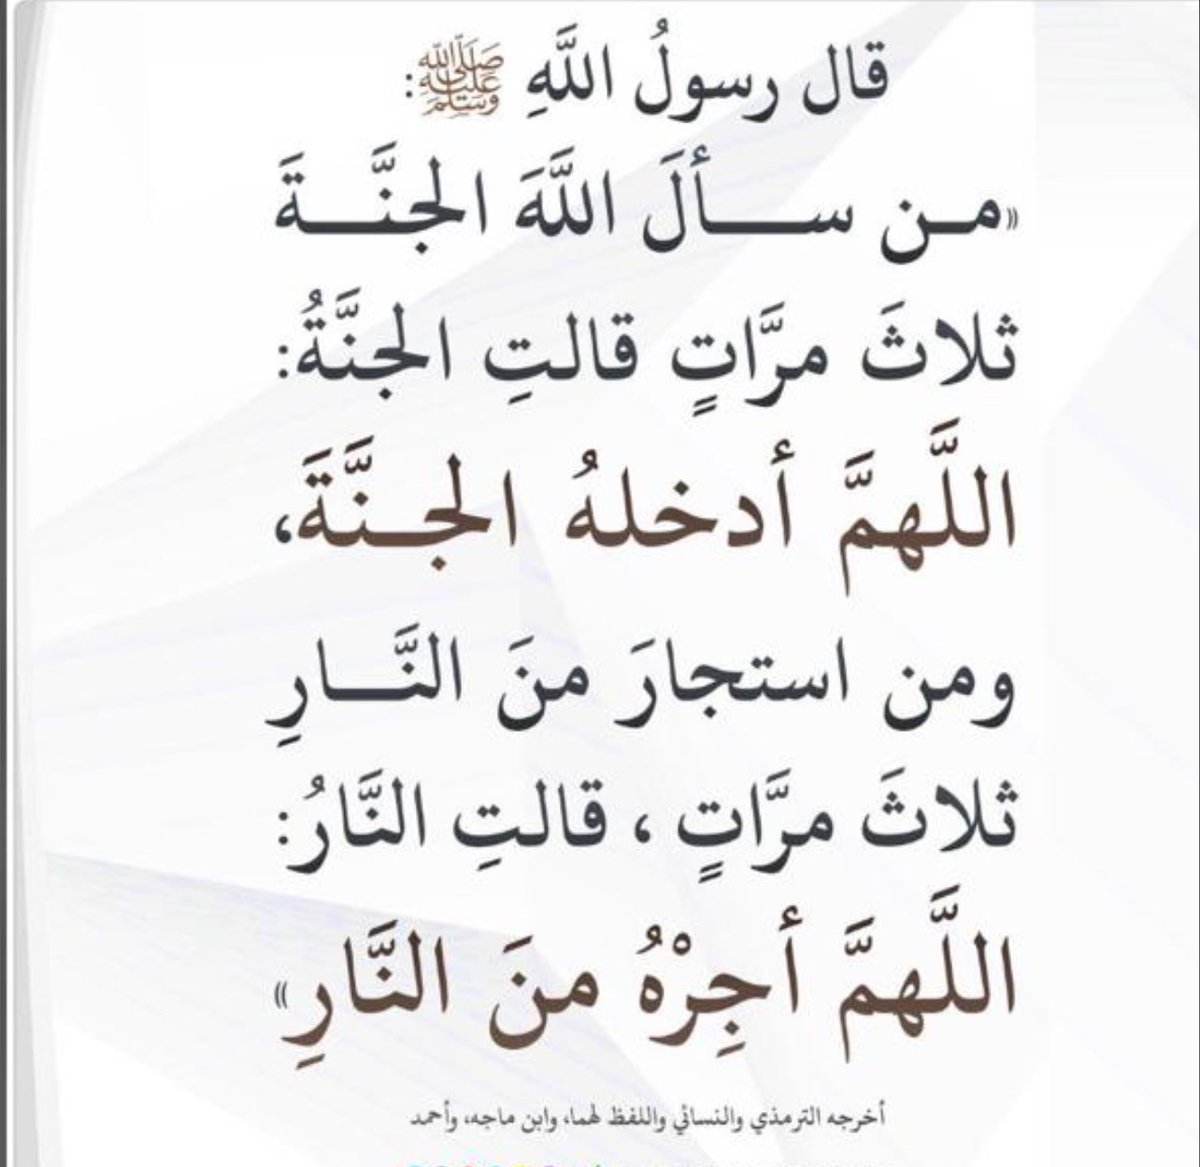 قال رسولُ اللَّهِ ﷺ:
«مـن ســألَ اللَّهَ الجنَّــةَ
ثلاثَ مرَّاتٍ قالتِ الجنَّةُ:
اللَّهمَّ أدخلهُ الجـنَّةَ،
ومن استجارَ منَ النَّــارِ
ثلاثَ مرَّاتٍ ، قالتِ النَّارُ:
اللَّهمَّ أجِرْهُ منَ النَّارِ»
أخرجه الترمذي والنسائي واللفظ لهما، وابن ماجه، وأحمد